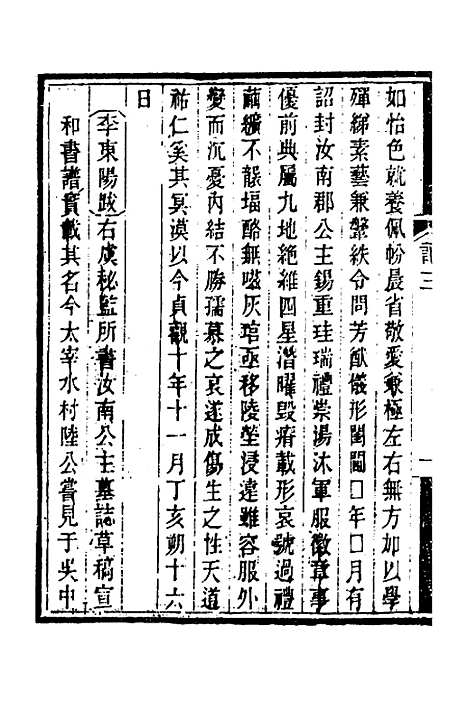 如怡色就養佩帉晨省敬愛兼極左右無方加以學
殫綈素藝兼鞶紩令問芳猷儀形閨閫□年□月有
詔封汝南郡公主錫重珪瑞禮崇湯沐車服徽章事
優前典屬九地絶維四星潛曜毀瘠載形哀號過禮
繭纊不襲塭酪無嗞灰琯亟移陵塋浸遠雖容服外
變而沉憂內結不勝孺慕之哀遂成傷生之性天道
祐仁奚其冥漠以今貞觀十年十一月丁亥朔十六
日
李東陽跋右虞秘監所書汝南公主墓誌草稿宣
和書譜實載其名今太宰水村陸公嘗見于吳中